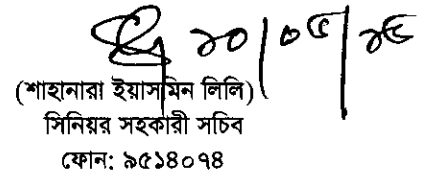 ২০/০৫/২৫
(শাহানারা ইয়াসমিন লিলি)
সিনিয়র সহকারী সচিব
ফোন: ৯৫১৪০৭৪